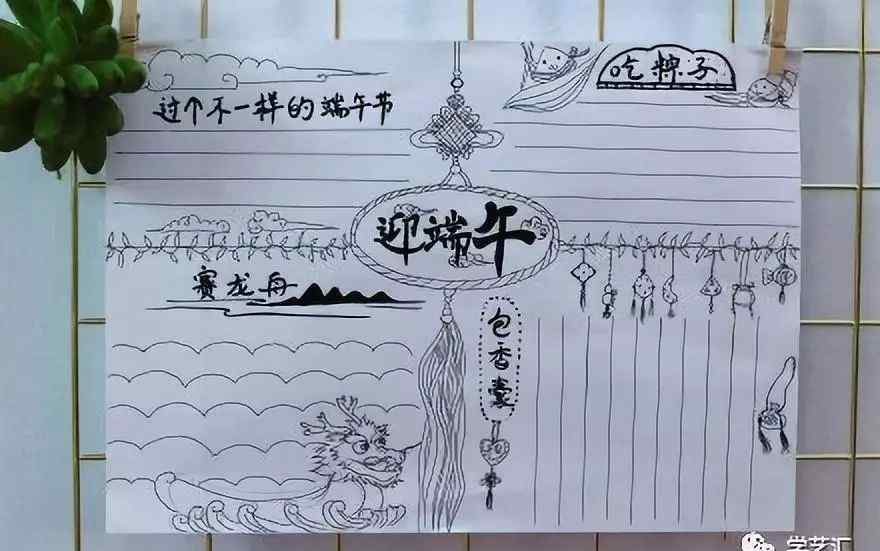 过个不一样的端午节
吃粽子
迎端午
赛龙舟
包香囊
学艺汇